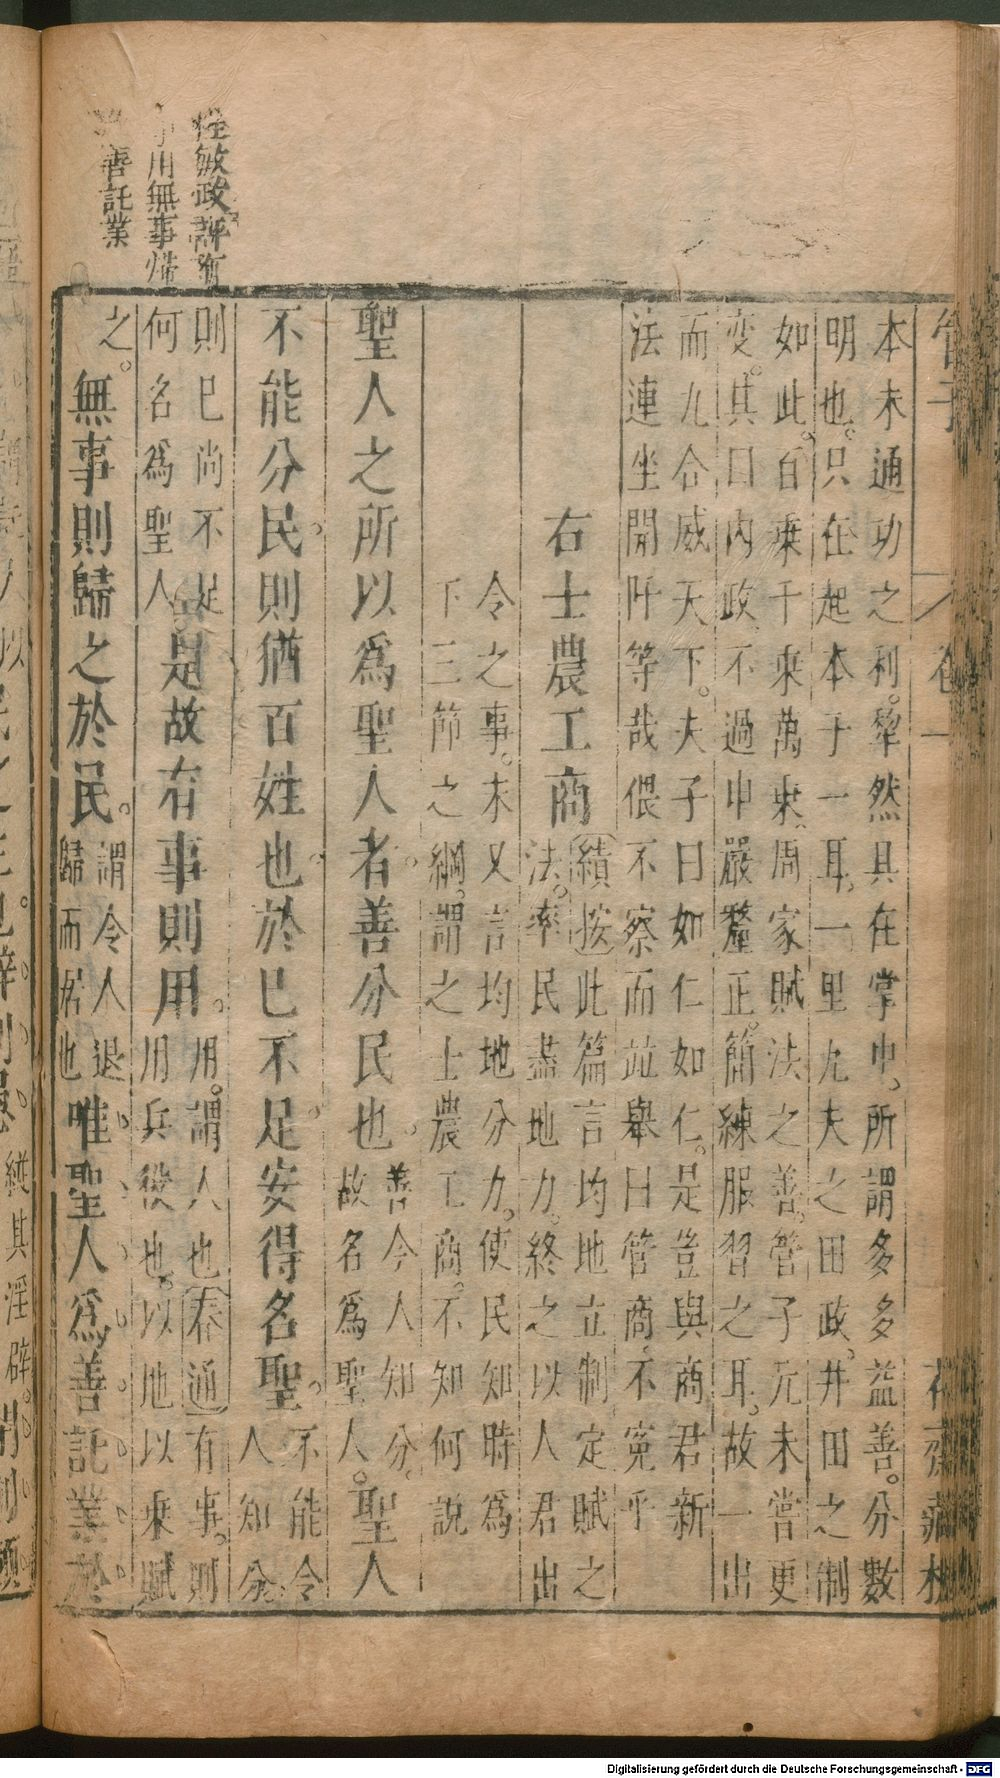 管子
卷一
花齋藏板
本末通功之利。犂然具在掌中、所謂多多益善。分數
明也。只在起本于一耳。一里九夫之田政、井田之制
如此。百乗千乗萬乗、周家賦法之善。管子元未嘗更
变。其曰内政、不過申嚴釐正。簡練服習之耳。故一出
而九合威天下。夫子曰如仁如仁。是豈與商君新
法連坐開阡等哉偎不察而竝舉曰管商、不寃乎
右士農工商
績按此篇言均地立制定賦之
法。率民盡地力。終之以人君出
令之事。末又言均地分力。使民知時為
下三節之綱。謂之士農工商。不知何說
聖人之所以爲聖人者。善分民也。
善令人知分。
故名爲聖人。
聖人
不能分民。則猶百姓也。於巳不足。安得名聖。
不能令
人知分
則巳尚不足
何名爲聖人
是故有事則用。
用。謂人也
用兵役也。
春通有事。則
以地以乗賦
之。
無事則歸之於民。
謂令人退
歸而居也
唯聖人爲善託業於
敏政評有
事用無事歸
善託業
縱其淫辟。
Digitalisierung gefördert durch die Deutsche Forschungsgemeinschaft - DFG